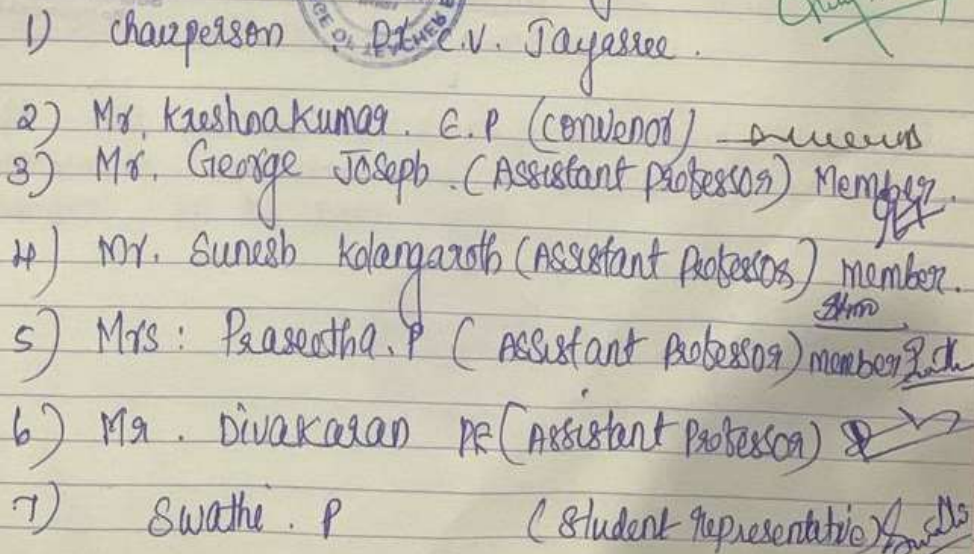 1) Chairperson Dr. C.V. Jayasree.
2) Mr. Kreshnakumar. E.P (convenor)
3) Mr. George Joseph. (Assistant professor) Member.
4) Mr. Sunesh Kolangaroth (Assistant Professor) member.
5) Mrs: Praseetha. P (Assistant Professor) member
6) Mr. Divakaran PE (Assistant Professor)
7) Swathi. P (Student representative)